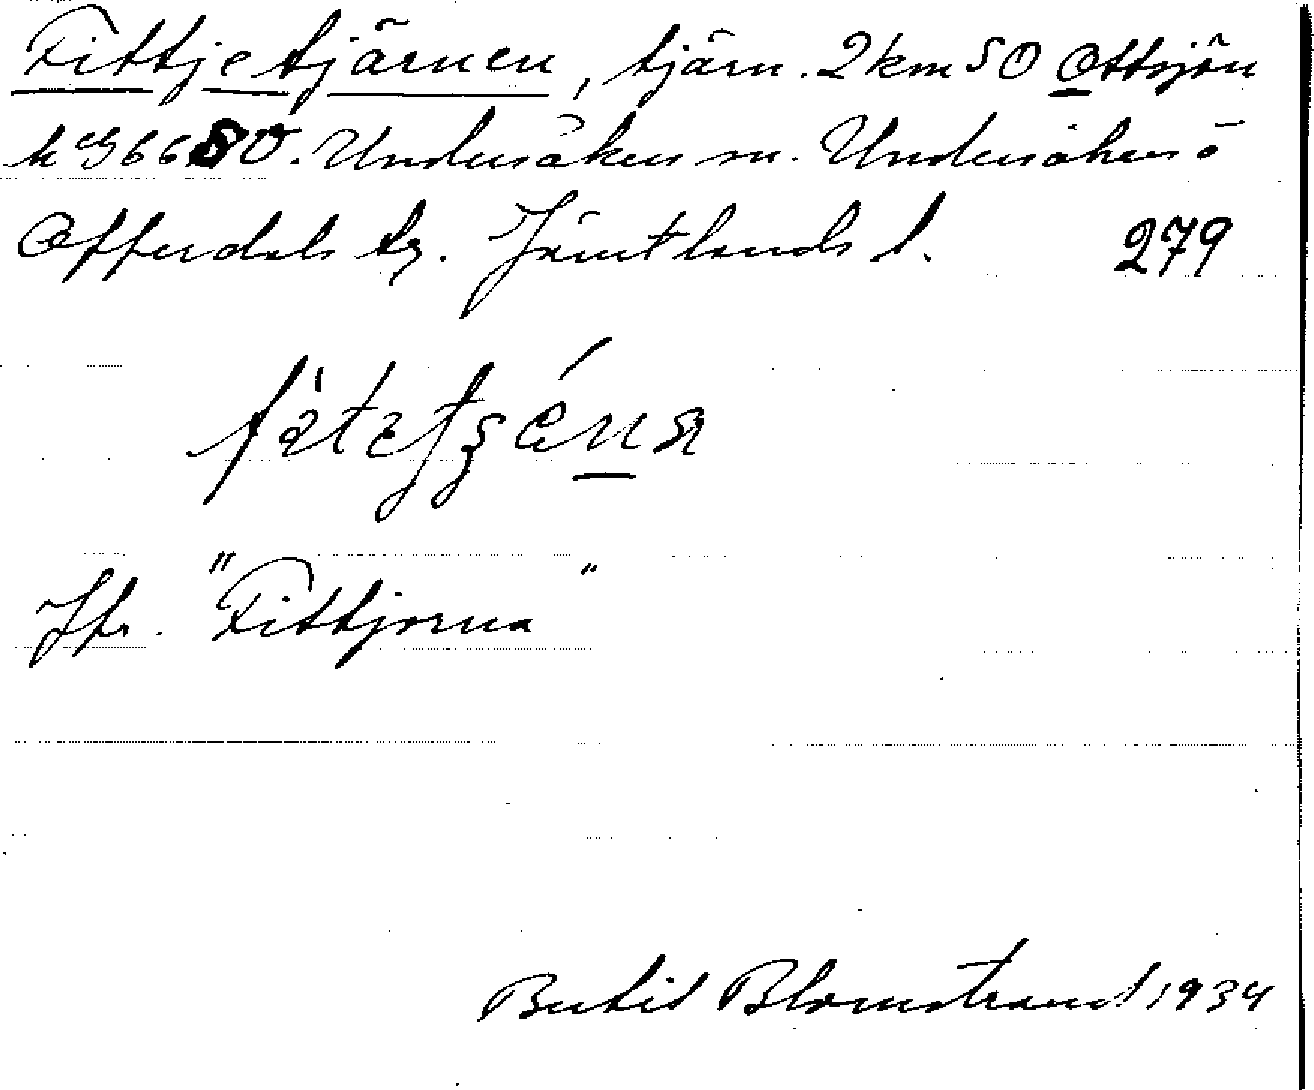 Fittjetjärnen, tjärn. 2 km SO Ottsjön
k G 66 SV. Undersåkers sn. Undersåkers o
Offerdals tg. Jämtlands l. 279
Jfr. "Fittjorna"
Bertil Blomstrand 1934